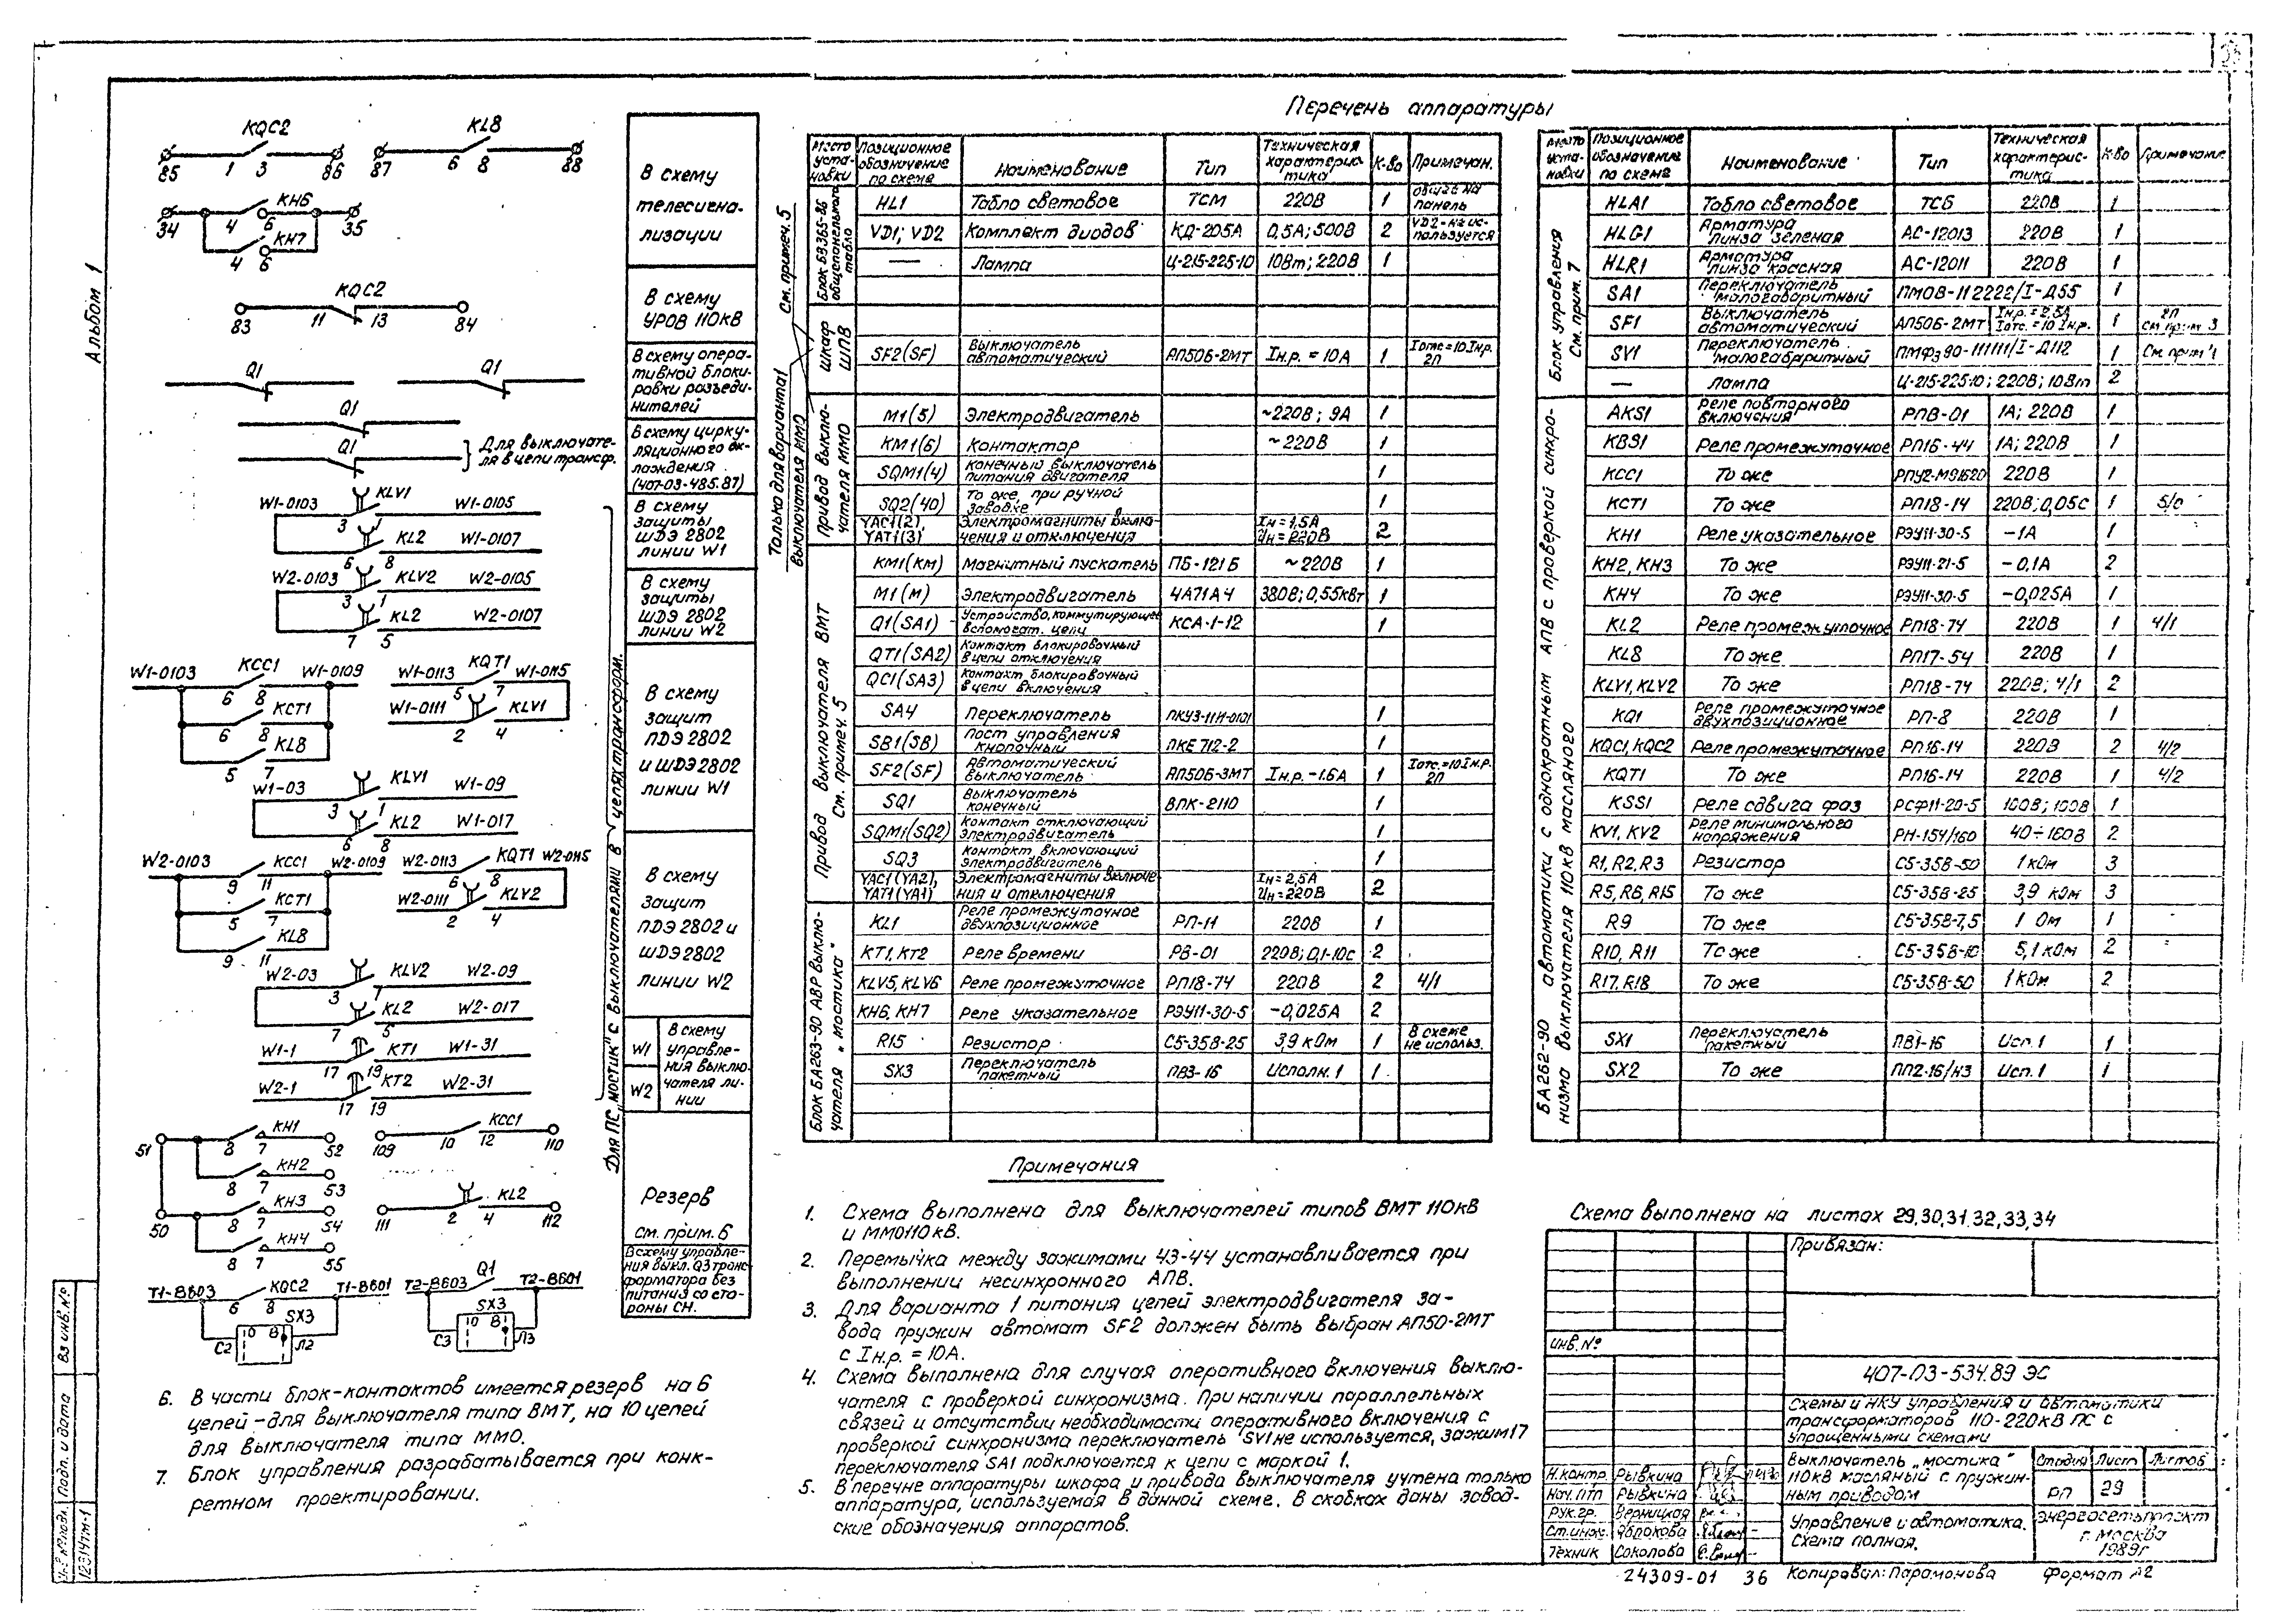 Альбом 1
KQC2
KL8
85 1 3 86 87 6 8 88
KH6
34 4 6 35
KH7
4 6
KQC2
83 11 13 84
Q1 Q1
Q1
Q1
Для выключате-
ля в цепи трансф.
W1-0103 KLV1 W1-0105
3 1
KL2 W1-0107
6 8
W2-0103 KLV2 W2-0105
3 1
KL2 W2-0107
7 5
W1-0103 KCC1 W1-0109 W1-0113 KQT1 W1-0115
6 8 5 7
KCT1 W1-0111 KLV1
6 8 2 4
KL8
5 7
W1-03 KLV1 W1-09
3 1
KL2 W1-017
6 8
W2-0103 KCC1 W2-0109 W2-0113 KQT1 W2-0115
9 11 6 8
KCT1 W2-0111 KLV2
5 7 2 4
KL8
9 11
W2-03 KLV2 W2-09
3 1
KL2 W2-017
7 5
W1-1 KT1 W1-31
17 19
W2-1 KT2 W2-31
17 19
51 KH1 KCC1
8 7 52 109 10 12 110
KH2
8 7 53
KH3 KL2
50 8 7 54 111 2 4 112
KH4
8 7 55
T1-B603 KQC2 T1-B601 T2-B603 Q1 T2-B601
6 8
SX3 SX3
C2 0 В Л2 C3 0 В Л3
Для ПС „мостик" с выключателями в цепях трансформ.
В схему
телесигна-
лизации
В схему
УРОВ 110кВ
В схему опера-
тивной блоки-
ровки разъеди-
нителей
В схему цирку-
ляционного ох-
лаждения
(407-03-485.87)
В схему
защиты
ШДЭ 2802
линии W1
В схему
защиты
ШДЭ 2802
линии W2
В схему
защит
ПДЭ 2802
и ШДЭ 2802
линии W1
В схему
защит
ПДЭ 2802 и
ШДЭ 2802
линии W2
W1
W2
В схему
управле-
ния выклю-
чателя ли-
нии
Резерв
см. прим. 6
В схему управле-
ния выкл. Q3 транс-
форматора без
питания со сто-
роны СН.
Перечень аппаратуры
Место установки Позиционное обозначение по схеме Наименование Тип Техническая характеристика К-во Примечан.
Блок БЭ365-86 общепанельного табло
HL1 Табло световое ТСМ 220В 1 общее на панель
VD1; VD2 Комплект диодов КД-205А 0,5А; 500В 2 VD2-не используется
— Лампа Ц-215-225-10 10Вт; 220В 1
Шкаф ШПВ
SF2(SF) Выключатель автоматический АП50Б-2МТ Iн.р. = 10А 1 Iотс=10Iн.р. 2П
Только для варианта 1 выключателя ММО
См. примеч. 5
Привод выключателя ММО
М1(5) Электродвигатель ~220В; 9А 1
КМ1(6) Контактор ~220В 1
SQM1(4) Конечный выключатель питания двигателя 1
SQ2(40) То же, при ручной заводке 1
YAC1(2), YAT1(3) Электромагниты включения и отключения Iн=1,5А Uн=220В 2
Привод выключателя ВМТ См. примеч. 5
КМ1(КМ) Магнитный пускатель ПБ-121Б ~220В 1
М1(М) Электродвигатель 4А71А4 380В; 0,55кВт 1
Q1(SA1) Устройство, коммутирующее вспомогат. цепи КСА-1-12 1
QT1(SA2) Контакт блокировочный в цепи отключения
QC1(SA3) Контакт блокировочный в цепи включения
SA4 Переключатель ПКУЗ-11И-0101 1
SB1(SB) Пост управления кнопочный ПКЕ 712-2 1
SF2(SF) Автоматический выключатель АП50Б-3МТ Iн.р.-1.6А 1 Iотс.=10Iн.р. 2П
SQ1 Выключатель конечный ВПК-2110 1
SQM1(SQ2) Контакт отключающий электродвигатель 1
SQ3 Контакт включающий электродвигатель 1
YAC1(YA2), YAT1(YA1) Электромагниты включения и отключения Iн=2,5А Uн=220В 2
Блок БА263-90 АВР выключателя „мостика"
KL1 Реле промежуточное двухпозиционное РП-11 220В 1
KT1, KT2 Реле времени РВ-01 220В; 0,1-10с 2
KLV5, KLV6 Реле промежуточное РП18-74 220В 2 4/1
KH6, KH7 Реле указательное РЭУ11-30-5 -0,025А 2
R15 Резистор С5-35В-25 3,9 кОм 1 В схеме не использ.
SX3 Переключатель пакетный ПВ3-16 Исполн. 1 1
Место установки Позиционное обозначение по схеме Наименование Тип Техническая характеристика К-во Примечание
Блок управления См. прим. 7
HLA1 Табло световое ТСБ 220В 1
HLG1 Арматура линза зеленая АС-12013 220В 1
HLR1 Арматура линза красная АС-12011 220В 1
SA1 Переключатель малогабаритный ПМОВ-112222/I-Д55 1
SF1 Выключатель автоматический АП50Б-2МТ Iн.р.=2,5А Iотс.=10 Iн.р. 1 2П См прим 3
SV1 Переключатель малогабаритный ПМФз90-111111/I-Д112 1 См. прим. 4
— Лампа Ц-215-225-10; 220В; 10Вт 2
БА262-90 автоматики с однократным АПВ с проверкой синхронизма выключателя 110кВ масляного
AKS1 Реле повторного включения РПВ-01 1А; 220В 1
KBS1 Реле промежуточное РП16-44 1А; 220В 1
KCC1 То же РПУ2-М91620 220В 1
KCT1 То же РП18-14 220В; 0,05с 1 5/0
KH1 Реле указательное РЭУ11-30-5 -1А 1
KH2, KH3 То же РЭУ11-21-5 -0,1А 2
KH4 То же РЭУ11-30-5 -0,025А 1
KL2 Реле промежуточное РП18-74 220В 1 4/1
KL8 То же РП17-54 220В 1
KLV1, KLV2 То же РП18-74 220В; 4/1 2
KQ1 Реле промежуточное двухпозиционное РП-8 220В 1
KQC1, KQC2 Реле промежуточное РП16-14 220В 2 4/2
KQT1 То же РП16-14 220В 1 4/2
KSS1 Реле сдвига фаз РСФ11-20-5 100В; 100В 1
KV1, KV2 Реле минимального напряжения РН-154/160 40÷160В 2
R1, R2, R3 Резистор С5-35В-50 1 кОм 3
R5, R6, R15 То же С5-35В-25 3,9 кОм 3
R9 То же С5-35В-7,5 1 Ом 1
R10, R11 То же С5-35В-10 5,1 кОм 2
R17, R18 То же С5-35В-50 1 кОм 2
SX1 Переключатель пакетный ПВ1-16 Исп. 1 1
SX2 То же ПП2-16/Н3 Исп. 1 1
Примечания
1. Схема выполнена для выключателей типов ВМТ 110кВ
и ММО110кВ.
2. Перемычка между зажимами 43-44 устанавливается при
выполнении несинхронного АПВ.
3. Для варианта 1 питания цепей электродвигателя за-
вода пружин автомат SF2 должен быть выбран АП50-2МТ
с Iн.р. = 10А.
4. Схема выполнена для случая оперативного включения выклю-
чателя с проверкой синхронизма. При наличии параллельных
связей и отсутствии необходимости оперативного включения с
проверкой синхронизма переключатель SV1 не используется, зажим 17
переключателя SA1 подключается к цепи с маркой 1.
5. В перечне аппаратуры шкафа и привода выключателя учтена только
аппаратура, используемая в данной схеме. В скобках даны завод-
ские обозначения аппаратов.
6. В части блок-контактов имеется резерв на 6
цепей - для выключателя типа ВМТ, на 10 цепей
для выключателя типа ММО.
7. Блок управления разрабатывается при конк-
ретном проектировании.
Схема выполнена на листах 29,30,31,32,33,34
Привязан:
Инв. №
407-03-534.89 ЭС
Схемы и НКУ управления и автоматики
трансформаторов 110-220кВ ПС с
упрощенными схемами
Выключатель „мостика"
110кВ масляный с пружин-
ным приводом
Стадия Лист Листов
РП 29
Управление и автоматика.
Схема полная.
Энергосетьпроект
г. Москва
1989г
Н.контр. Рывкина
Нач. ПТП Рывкина
Рук.гр. Верницкая
Ст.инж. Яблокова
Техник Соколова
24309-01 36 Копировал: Парамонова Формат А2
Инв № подл. Подп. и дата Вз инв. №
12314тм-1